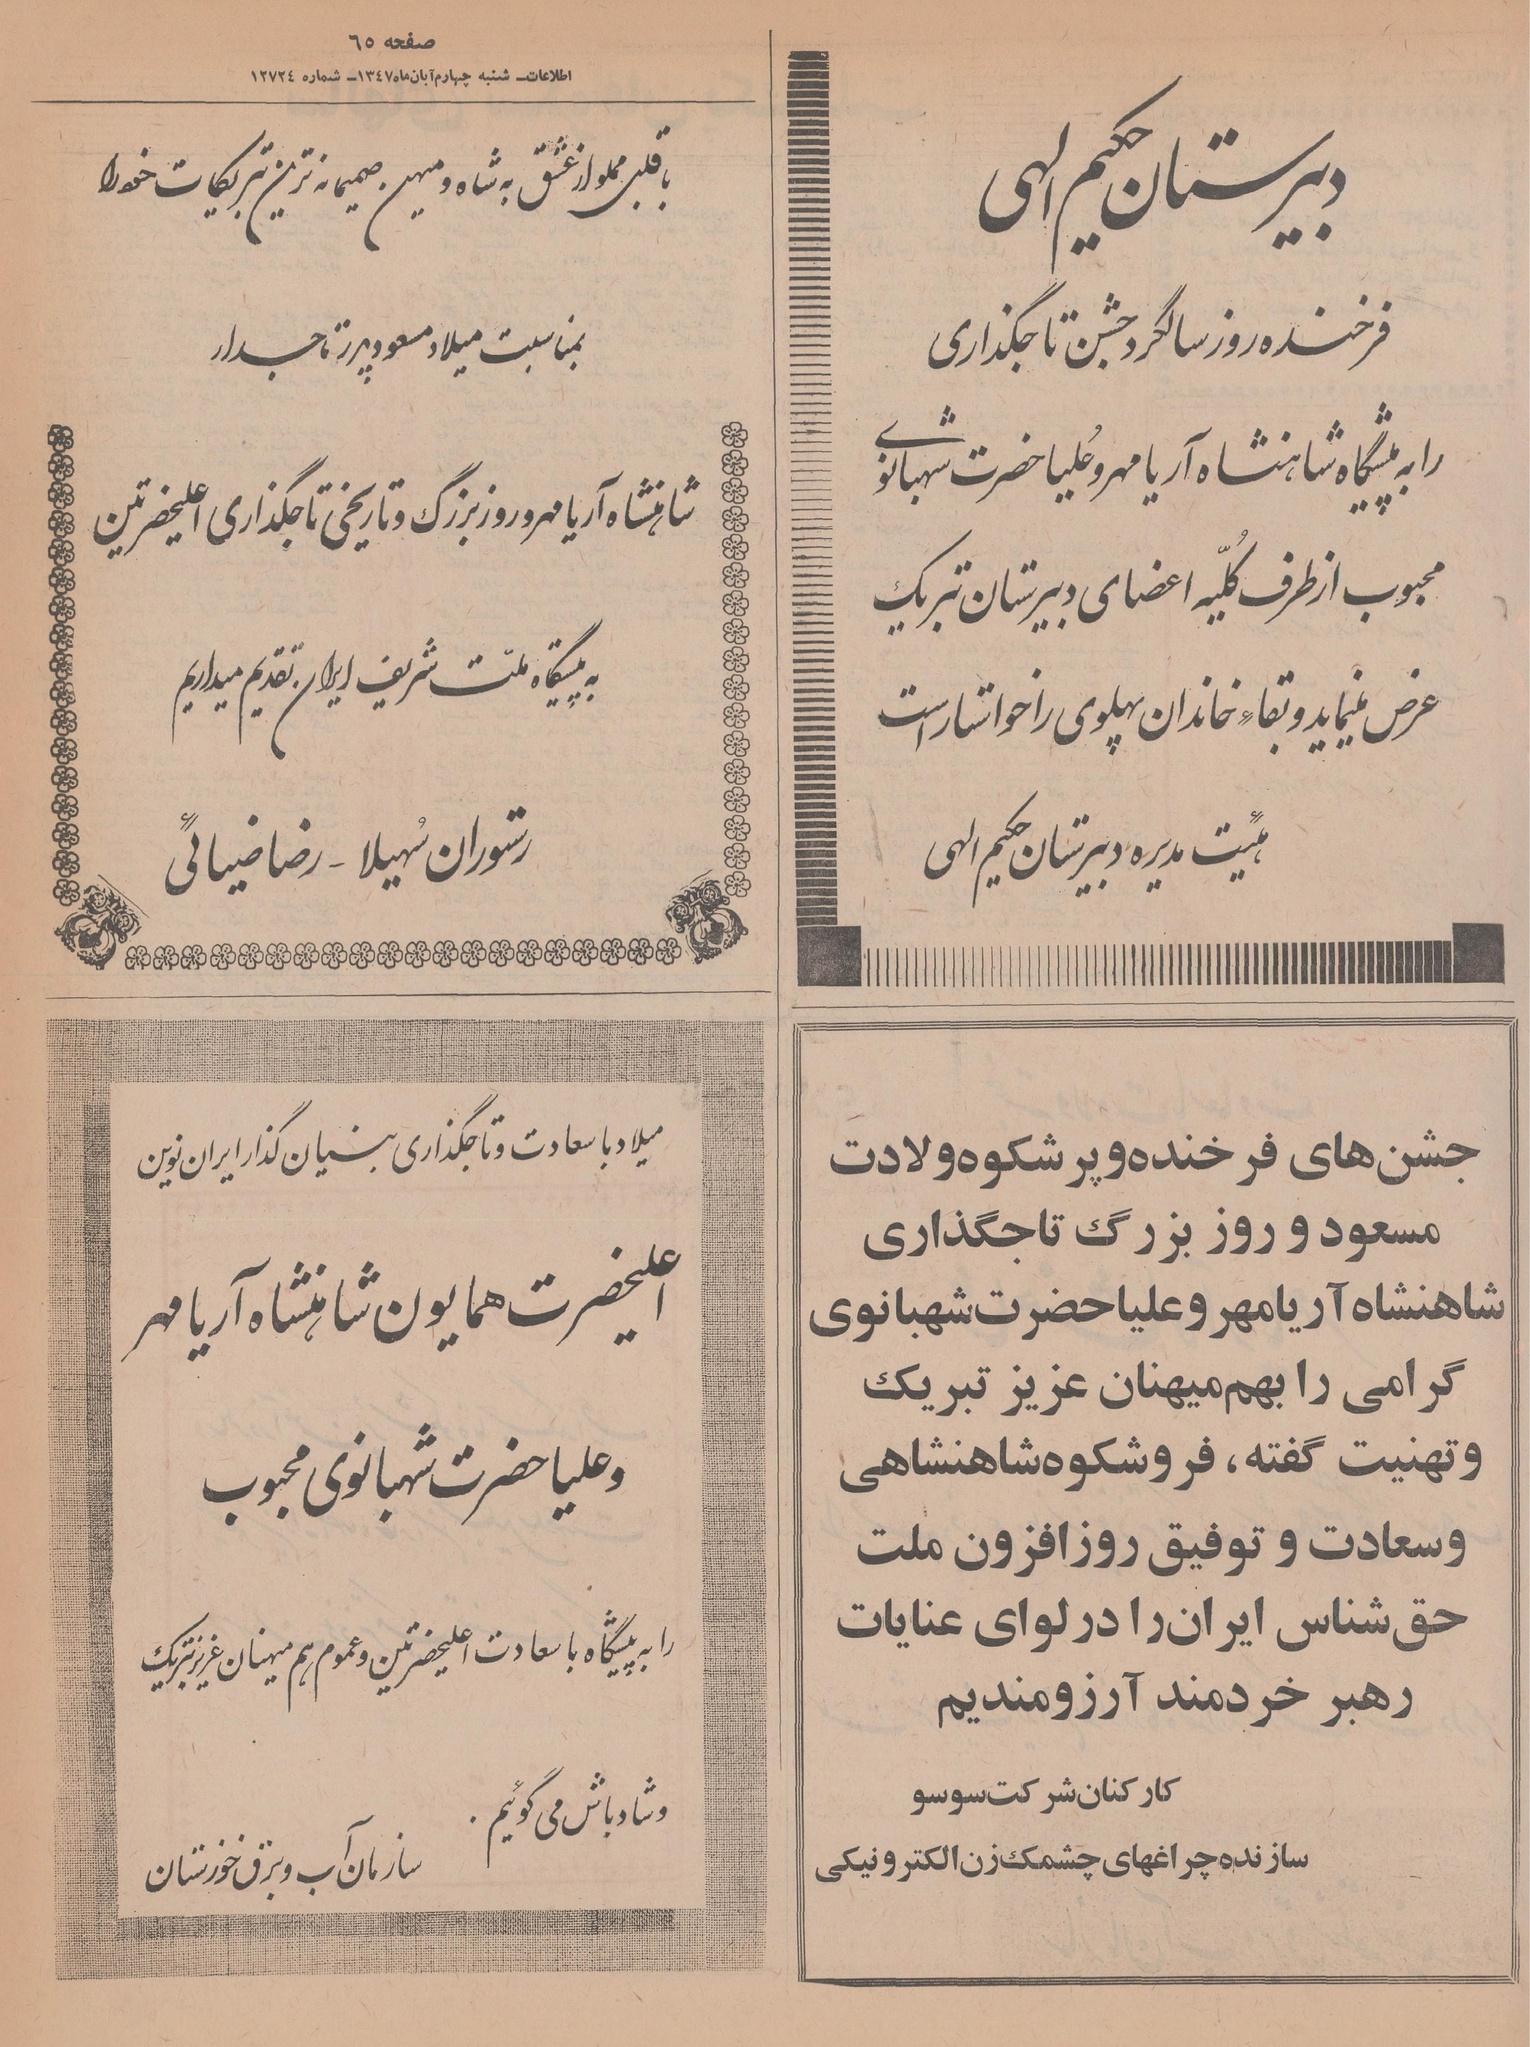 صفحه ٦٥
اطلاعات ـ شنبه چهارم آبان ماه ۱۳٤۷ ـ شماره ۱۲۷۲٤
دبیرستان حکیم الهی
فرخنده روز سالگرد جشن تاجگذاری
را به پیشگاه شاهنشاه آریامهر و علیاحضرت شهبانوی
محبوب از طرف کلیّه اعضای دبیرستان تبریک
عرض مینماید و بقاء خاندان پهلوی را خواستار است
هیئت مدیره دبیرستان حکیم الهی
با قلبی مملو از عشق به شاه و میهن صمیمانه ترین تبریکات خود را
بمناسبت میلاد مسعود پدر تاجدار
شاهنشاه آریامهر و روز بزرگ و تاریخی تاجگذاری اعلیحضرتین
به پیشگاه ملت شریف ایران تقدیم میداریم
رستوران سُهیلا ـ رضا ضیائی
جشن‌های فرخنده و پرشکوه ولادت
مسعود و روز بزرگ تاجگذاری
شاهنشاه آریامهر و علیاحضرت شهبانوی
گرامی را بهم‌میهنان عزیز تبریک
و تهنیت گفته، فر و شکوه شاهنشاهی
و سعادت و توفیق روزافزون ملت
حق‌شناس ایران را در لوای عنایات
رهبر خردمند آرزومندیم
کارکنان شرکت سوسو
سازنده چراغهای چشمک زن الکترونیکی
میلاد با سعادت و تاجگذاری بنیان گذار ایران نوین
اعلیحضرت همایون شاهنشاه آریامهر
و علیاحضرت شهبانوی محبوب
را به پیشگاه با سعادت اعلیحضرتین و عموم هم میهنان عزیز تبریک
و شادباش می گوئیم .
سازمان آب و برق خوزستان